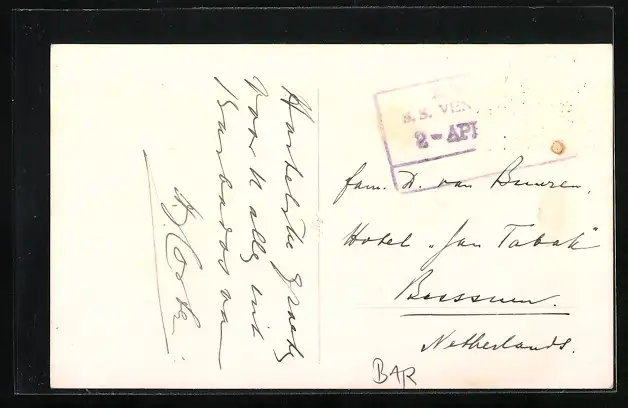 Hartelijke groeten
voor U allen uit
Barbados van
S.S. VEN
2-API
fam. A. van Buuren,
Hotel „Jan Tabak"
Bussum.
Netherlands.
BAR